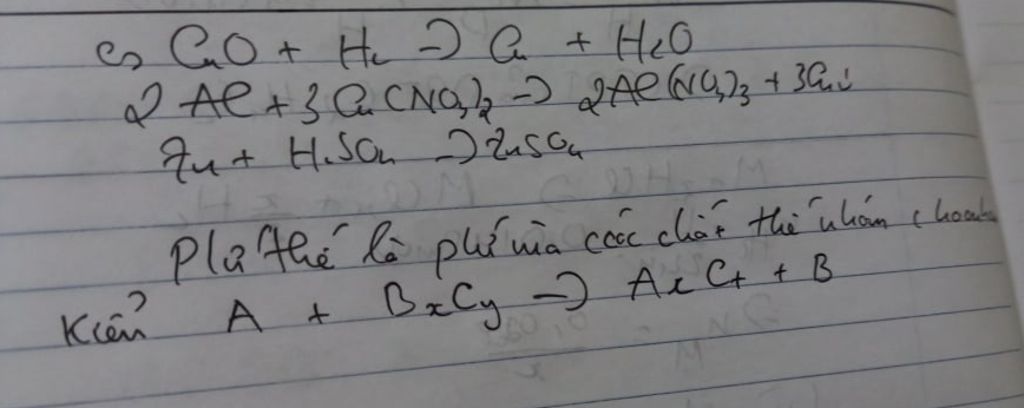 c) CuO + H₂ → Cu + H₂O
2 Al + 3 Cu(NO₃)₂ → 2Al(NO₃)₃ + 3Cu
Zn + H₂SO₄ → ZnSO₄
Pứ thế là pứ mà các chất thế nhau
Kiểu A + BxCy → AxCt + B